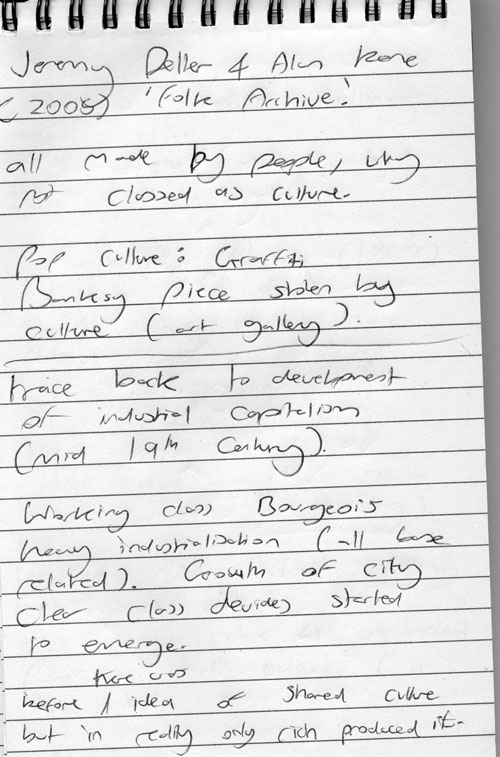 Jeremy Deller & Alan Kane
(2005) 'Folk Archive'.
all made by people, why
not classed as culture.
Pop culture: Graffiti
Banksy piece stolen by
culture (art gallery).
trace back to development
of industrial capitalism
(mid 19th Century).
Working class Bourgeois
heavy industrialisation (all
related). Growth of city
clear class devides started
to emerge.
there was
before / idea of shared culture
but in reality only rich produced it.